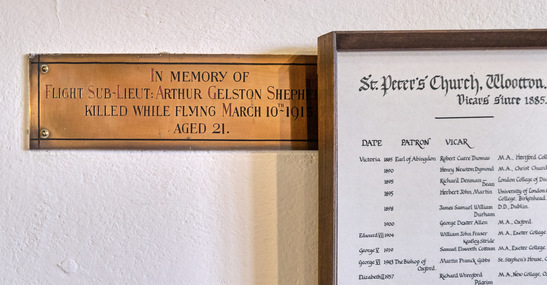 IN MEMORY OF
FLIGHT SUB-LIEUT: ARTHUR GELSTON SHEPHE
KILLED WHILE FLYING MARCH 10TH 1915
AGED 21.
St. Peter's Church, Wootton.
Vicars since 1885.
DATE PATRON VICAR
Victoria 1885 Earl of Abingdon Robert Cuttre Thomas M.A., Hertford Col
1890 Henry Newton Dymond M.A., Christ Church
1893 Richard Denman Dean London College of Di
1895 Herbert John Martin University of London
College, Birkenhead.
1898 James Samuel William D.D., Dublin.
Durham
1900 George Dexter Allen M.A., Oxford.
Edward VII 1904 William John Fraser M.A., Exeter College.
Keatley Stride
George V 1919 Samuel Elsworth Cottam M.A., Exeter College.
George VI 1943 The Bishop of Martin Pinnock Gibbs St. Stephen's House, O
Oxford.
Elizabeth II 1957 Richard Wereford M.A., New College, O
Pilgrim